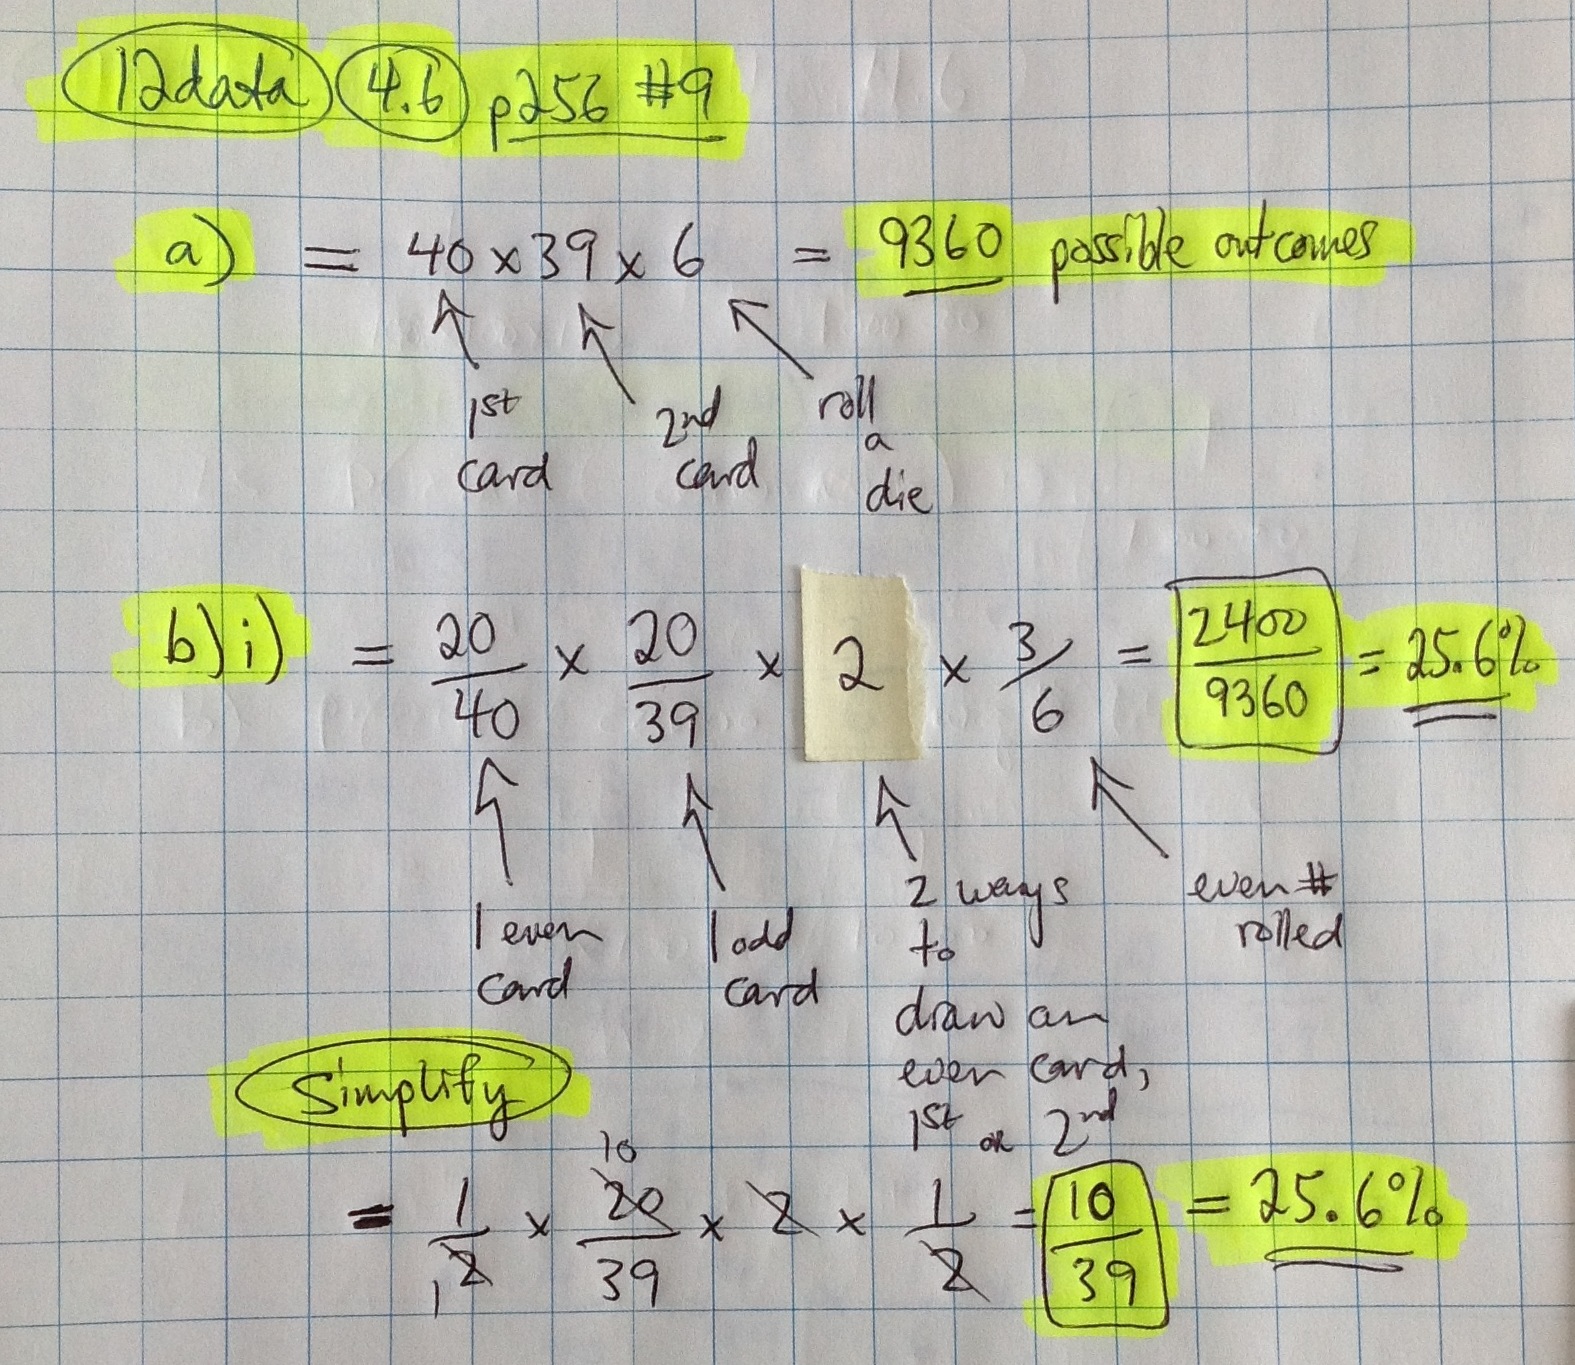 12data 4.6 p256 #9
a) = 40 x 39 x 6 = 9360 possible outcomes
1st card
2nd card
roll a die
b) i) = 20/40 x 20/39 x 2 x 3/6 = 2400/9360 = 25.6%
1 even card
1 odd card
2 ways to draw an even card, 1st or 2nd
even # rolled
Simplify
10
= 1/2 x 20/39 x 2 x 1/2 = 10/39 = 25.6%
1